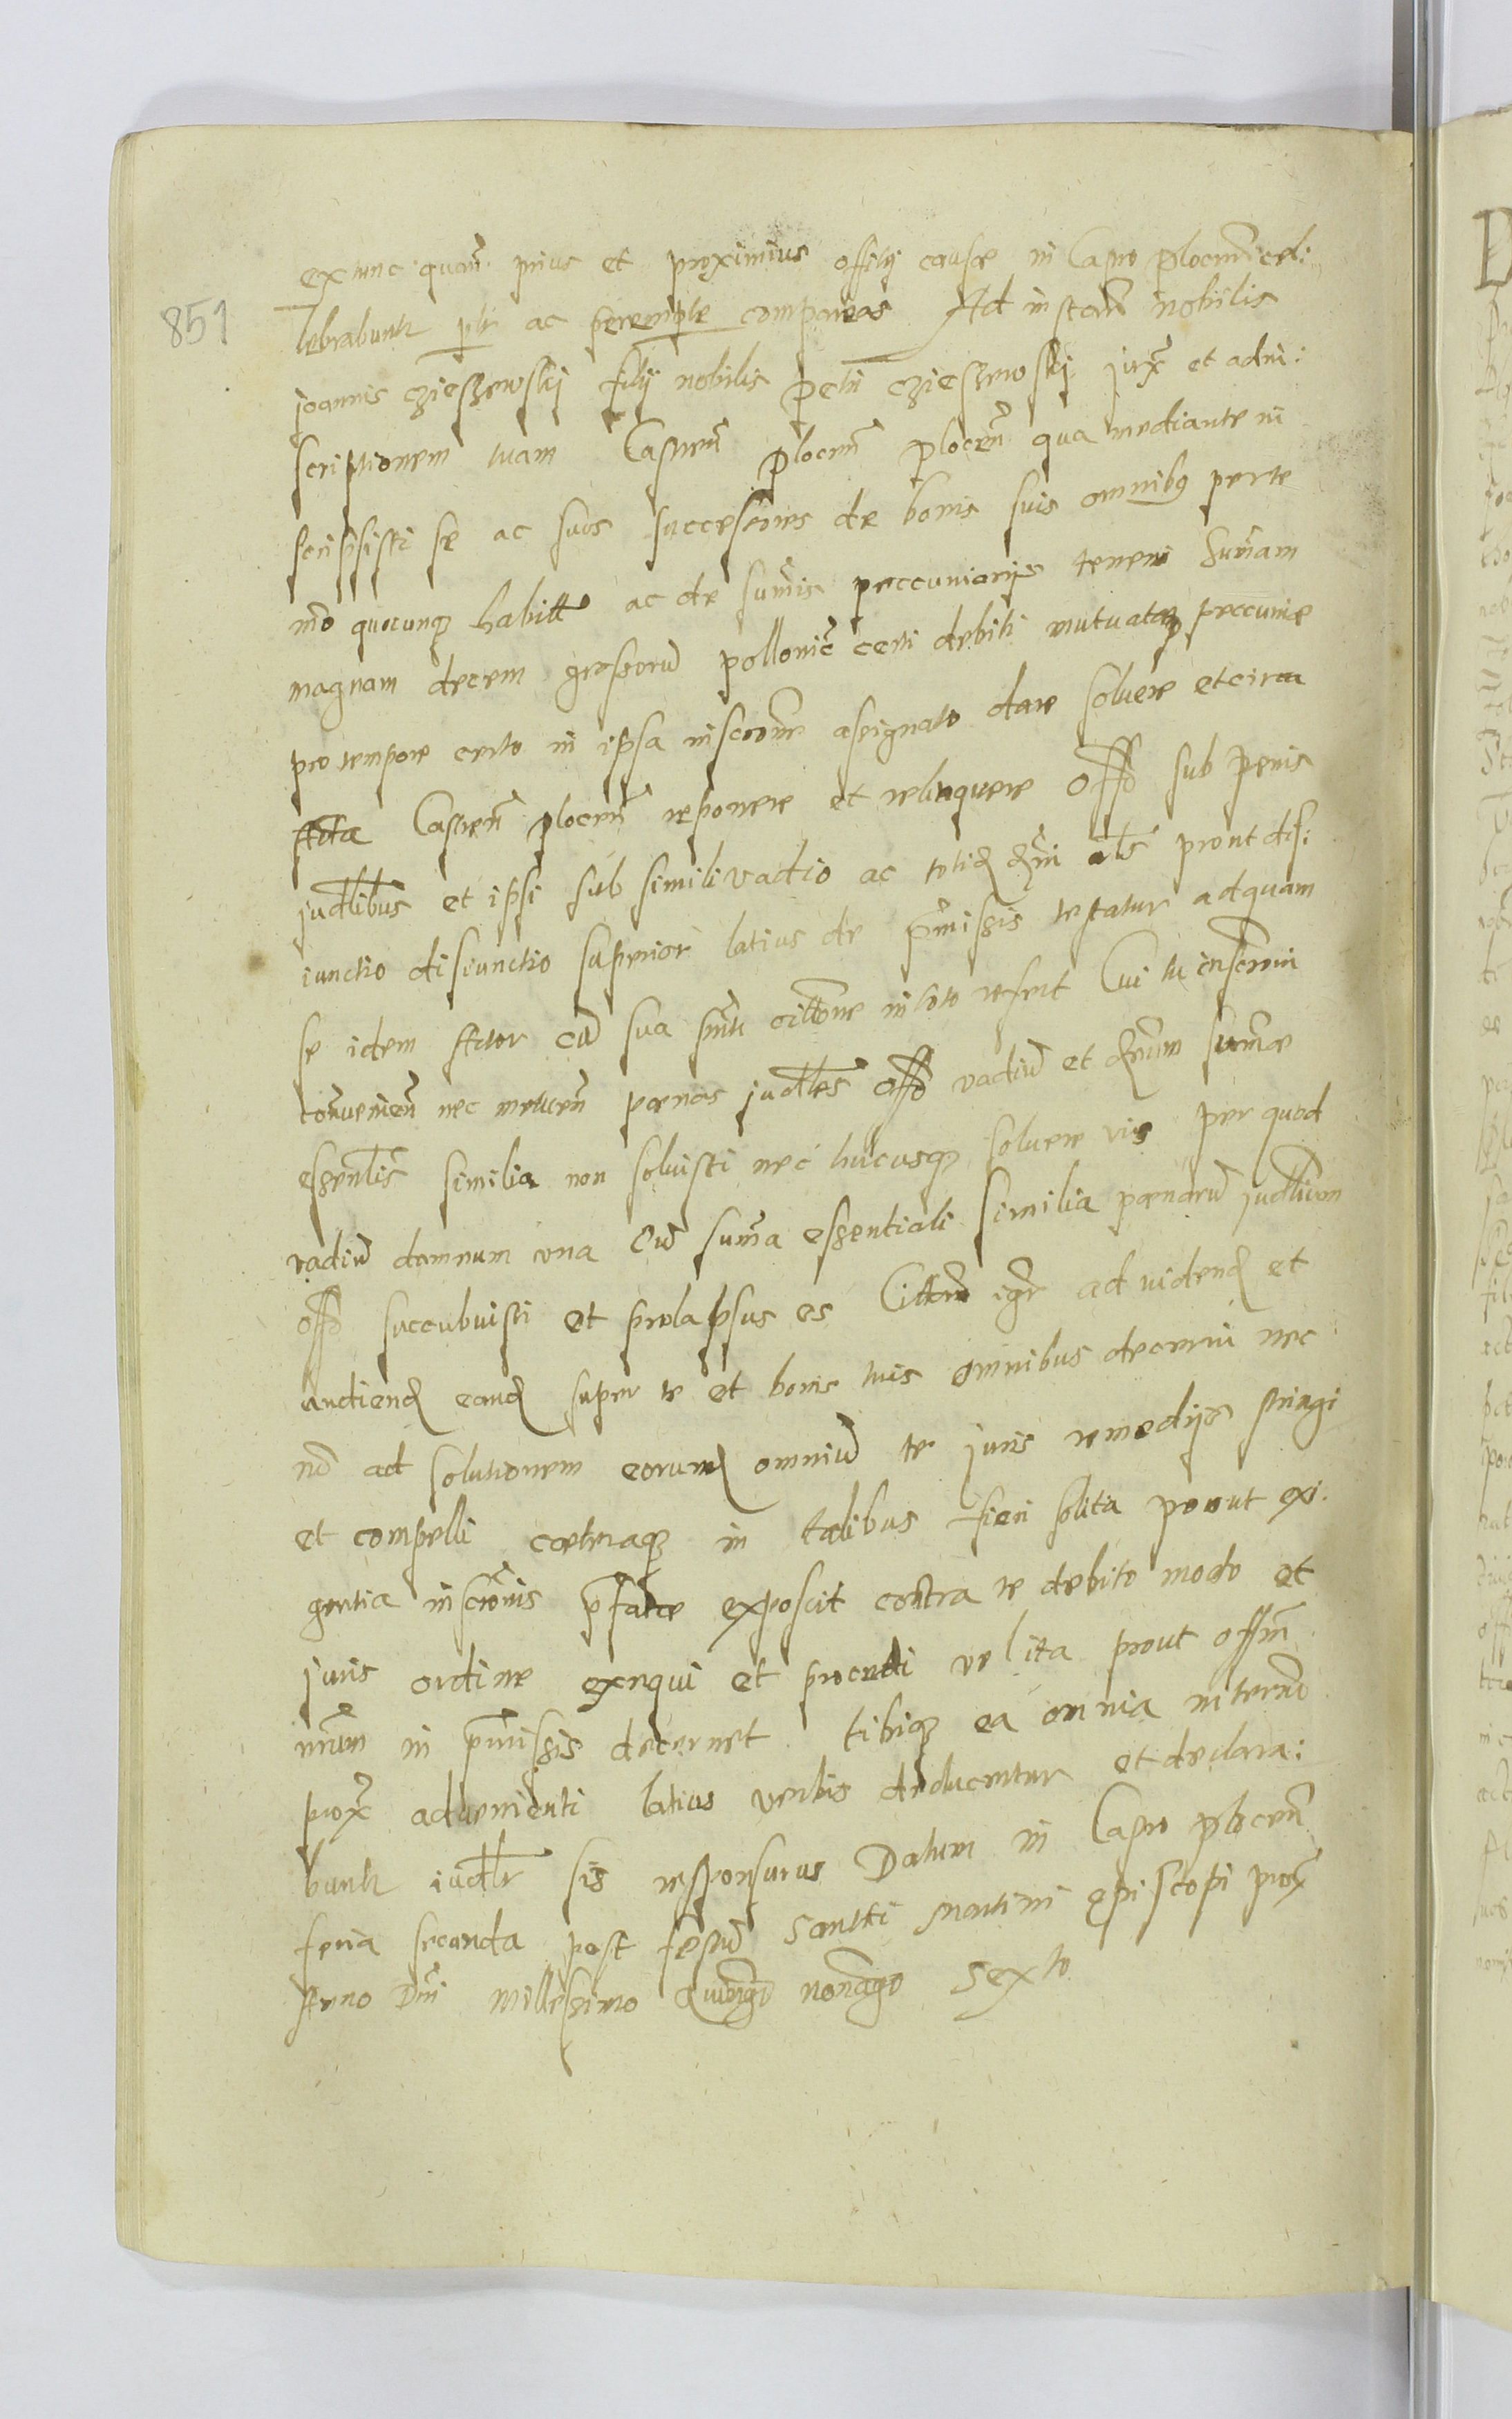 851
ex tunc quam̃ prius et proximius offitij causæ in Castro plocensi cele:
lebrabuntr̃ plr̃ ac peremptͤ compareas Ad instam̃ nobilis
joannis cziesszewskij filij nobilis petri cziesszewskij juxͣ et ad in:
scriptionem tuam Castren̄ plocen̄ plocen̄ qua mediante in
scripsisti se ac suos successores de bonis suis omnibꝫ perte
mõ quocunqꝫ habitt ac de summis peccuniarijs teneri Summam
magnam decem grossorū pollonic̃ certi debiti mutuatæqꝫ peccuniæ
pro tempore certo in ipsa inscrione assignato dare soluere et circa
Acta Castren̄ plocen̄ reponere et relinquere offõ sub penis
judlibus et ipsi sub simili vadio ac totiď dm̃ni als prout dis:
iunctio disiunctio superior latius de pr̃missis testatur ad quam
se idem Actor cũ sua pn̄ti cittone in toto refert Cui tu inscrini
conuenien̄ nec metuen̄ pœnas judles offõ vadiũ et dm̃num summæ
essenlis similia non soluisti nec hucusqꝫ soluere vis per quod
vadiũ damnum una cũ summa essentiali similia pœnarũ judlium
offõ succubuisti et prolapsus es Citaris igr̃ ad uidenď et
audienď eanď super te et bonis tuis omnibus decerni nec
nõ ad solutionem eorunď omniũ te juris remedijs stringi
et compelli cæteraqꝫ in talibus fieri solita prout exi:
gentia inscrionis p̄fatæ exposcit contra te debito modo et
juris ordine exequi et procedi uel ita prout offm̃
nr̃um in p̄missis decernet tibiqꝫ ea omnia in termõ
proxͦ aduenienti latius verbis deducentur et declara:
buntr̃ iudlr̃ sis responsurus Datum in Castro plocen̄
feria secunda post festũ Sancti Martini episcopi proxͣ
Anno Dni millesimo Quingmo nonagmo Sexto